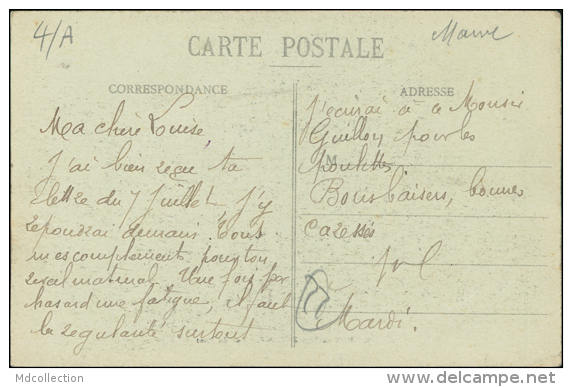 4/A
Marne
CARTE POSTALE
CORRESPONDANCE
ADRESSE
Ma chère Louise,
J'ai bien reçu ta
lettre du 7 Juillet j'y
repondrai demain. Tous
mes compliment pour ton
reveil matinal. Une fois par
hasard une fatigue, il faut
la regularité surtout
J'ecrirai à ce Monsie
Guillon pour les
M
poulettes
Bons baisers, bonnes
caresses
Mardi.
Mdcollection
delcampe.net